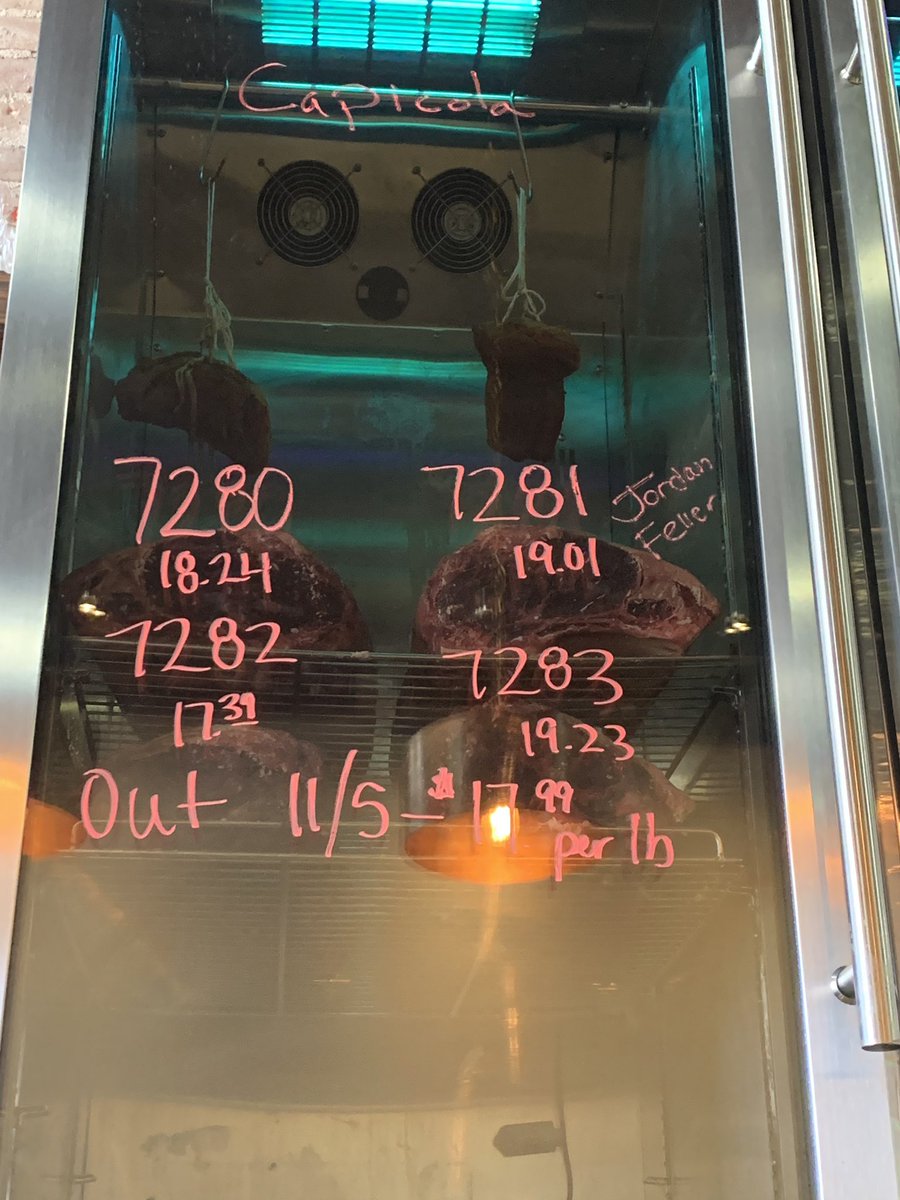 Capicola
7280
18.24
7281
19.01
Jordan
Feller
7282
17.39
7283
19.23
Out 11/5 - $17.99
per lb